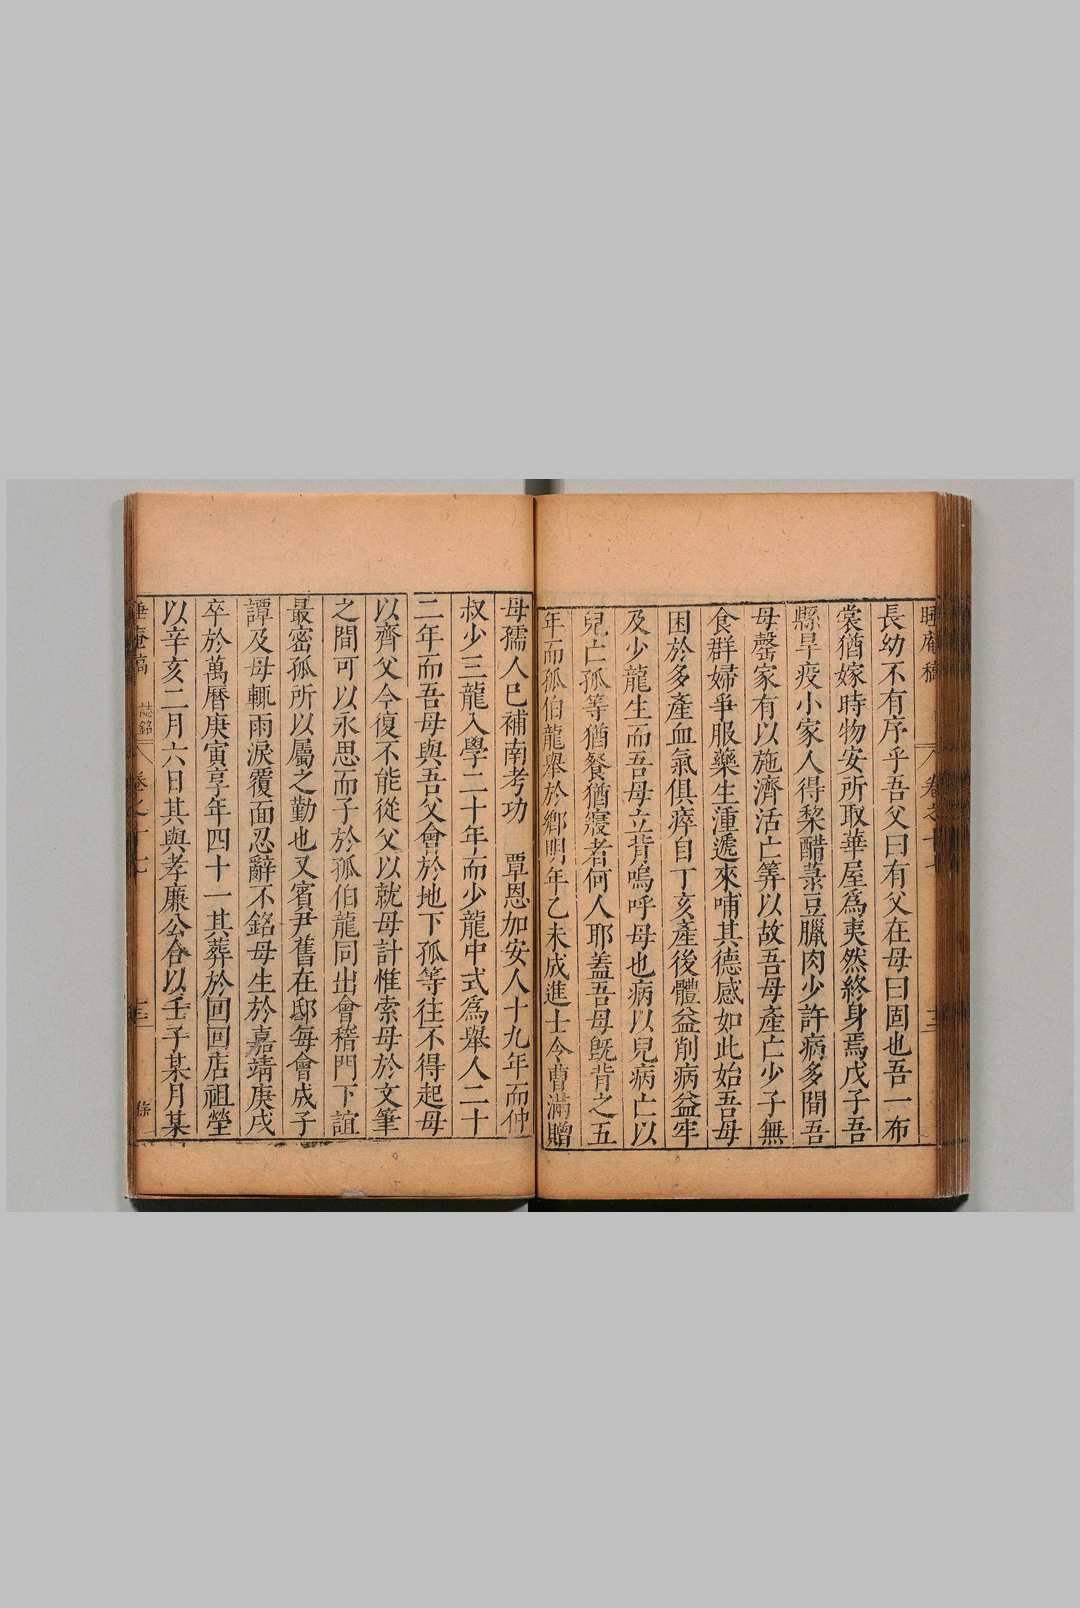 睡庵稿
卷之十七
長幼不有序乎吾父曰有父在母曰固也吾一布
裳猶嫁時物安所取華屋爲夷然終身焉戊子吾
縣旱疫小家人得黎醋菉豆臘肉少許病多間吾
母罄家有以施濟活亡筭以故吾母產亡少子無
食群婦爭服藥生湩遞來哺其德感如此始吾母
困於多產血氣俱瘁自丁亥產後體益削病益牢
及少龍生而吾母立背嗚呼母也病以兒病亡以
兒亡孤等猶餐猶寢者何人耶蓋吾母旣背之五
年而孤伯龍舉於鄉明年乙未成進士令曹滿贈
母孺人已補南考功 覃恩加安人十九年而仲
叔少三龍入學二十年而少龍中式爲舉人二十
二年而吾母與吾父會於地下孤等往不得起母
以齊父今復不能從父以就母計惟索母於文筆
之間可以永思而子於孤伯龍同出會稽門下誼
最密孤所以屬之勤也又賓尹舊在邸每會成子
譚及母輒雨淚覆面忍辭不銘母生於嘉靖庚戌
卒於萬曆庚寅亨年四十一其葬於回回店祖塋
以辛亥二月六日其與孝廉公合以壬子某月某
睡庵稿
誌銘
卷之十七